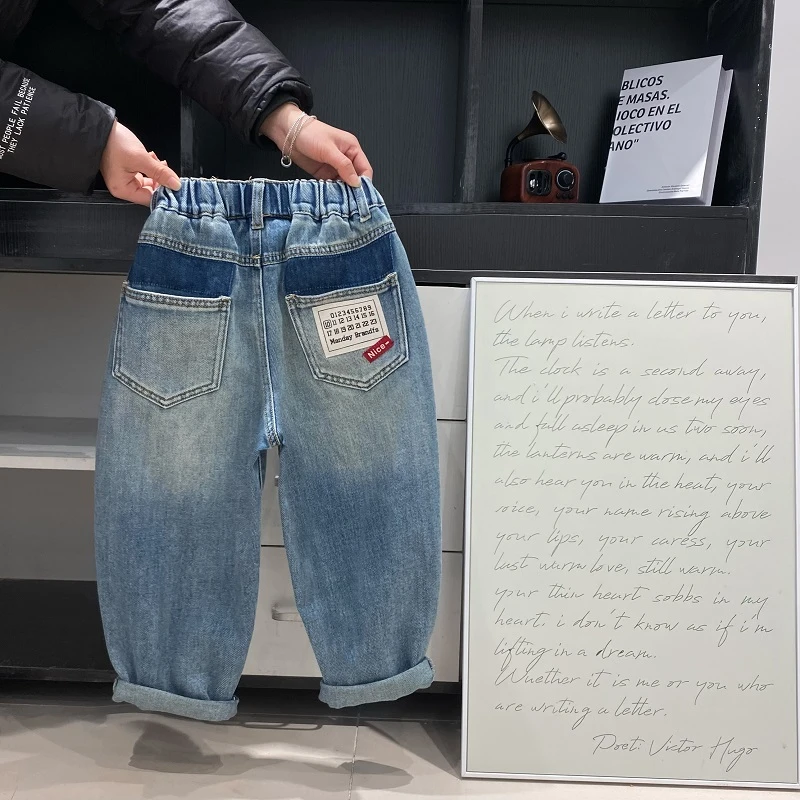 MOST PEOPLE FAIL BECAUSE
THEY LACK PATIENCE
BLICOS
E MASAS.
IOCO EN EL
OLECTIVO
ANO"
0123456789
10 11 12 13 14 15 16
17 18 19 20 21 22 23
Manday Brandfs
Nice~
When i write a letter to you,
the lamp listens.
The clock is a second away,
and i'll probably close my eyes
and fall asleep in us two soon,
the lanterns are warm, and i'll
also hear you in the heat, your
voice, your name rising above
your lips, your caress, your
last warm love, still warm.
your thin heart sobbs in my
heart. i don't know as if i'm
lifting in a dream.
Wuether it is me or you who
are writing a letter.
Poet: Victor Hugo